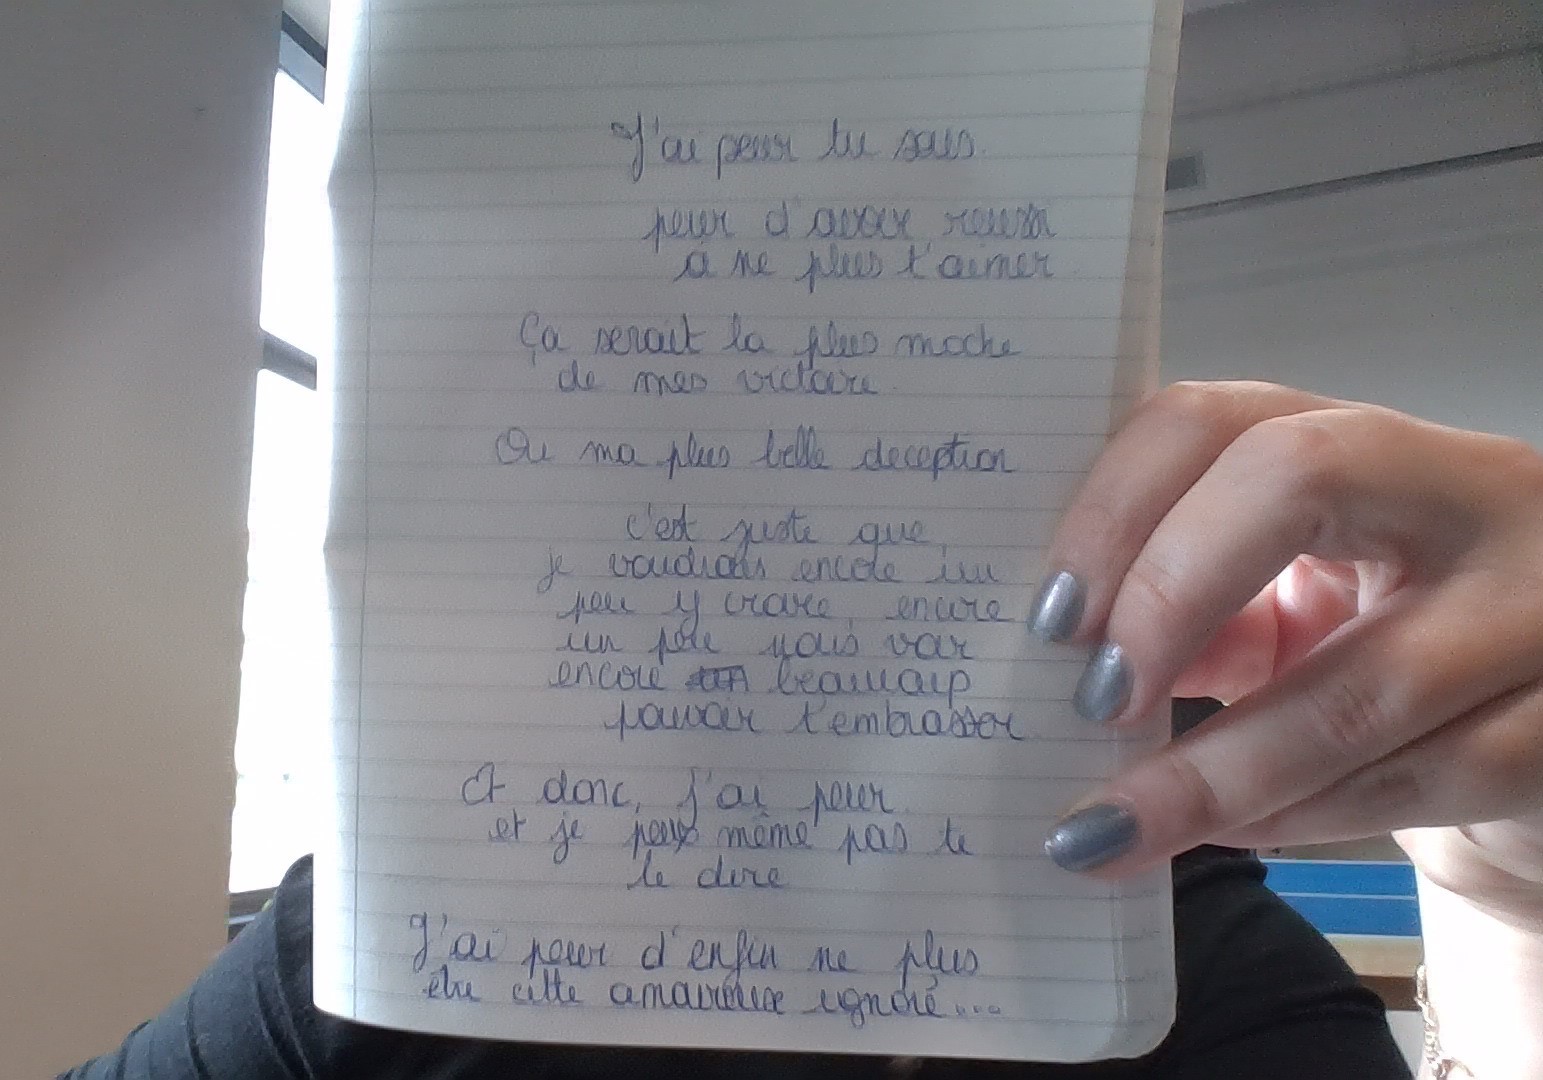 J'ai peur tu sais.
peur d'avoir reussi
a ne plus t'aimer
Ça serait la plus moche
de mes victoire.
Ou ma plus belle deception
c'est juste que
je voudrais encore un
peu y croire, encore
un peu nous voir
encore beaucoup
pouvoir t'embrasser
Et donc, j'ai peur.
et je peux même pas te
le dire
J'ai peur d'enfin ne plus
être cette amoureuse ignoré...